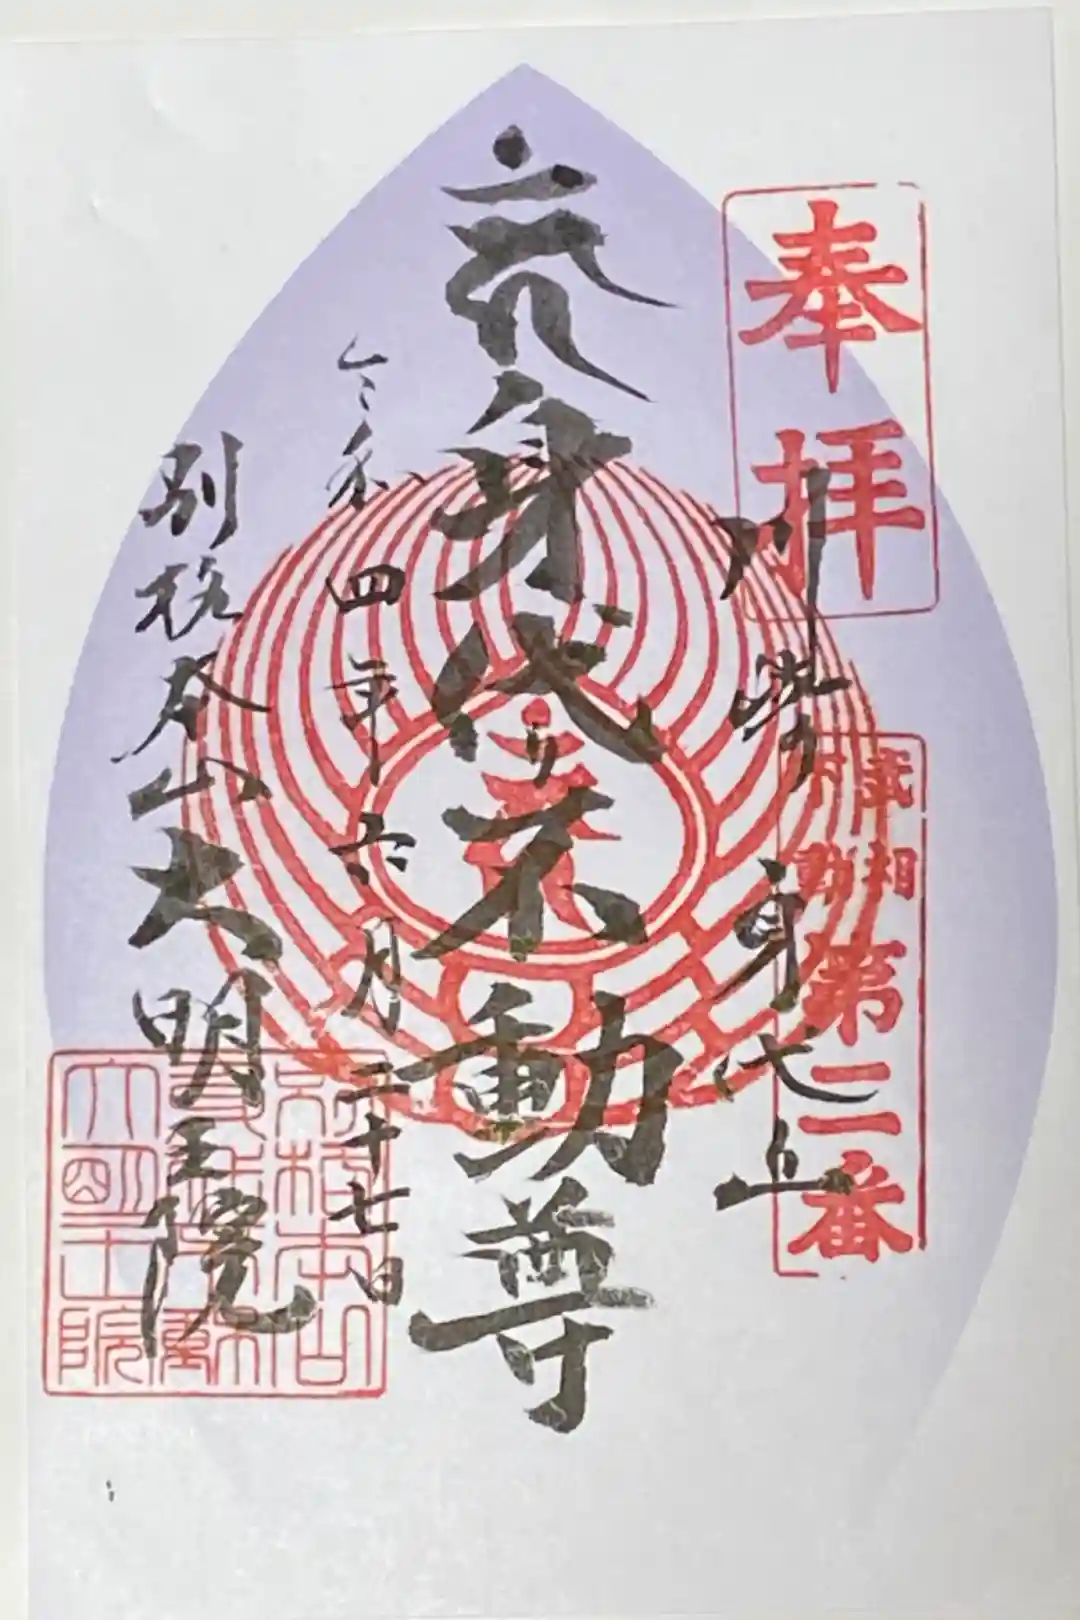 奉拝
武相
不動
第二番
川崎
身代上
身代り不動尊
令和四年六月二十七日
別格本山大明王院